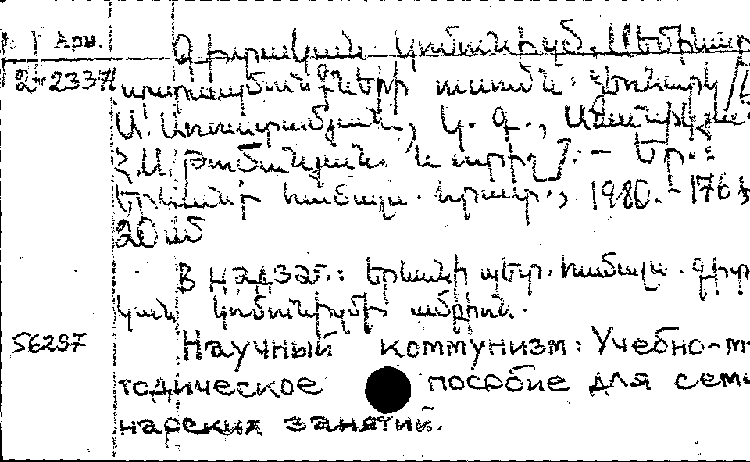 Арм.
Գիտական կոմունիզմ. Սեմինար
2-23371 պարապմունքների ուսումն. ձեռնարկ /
Մ. Առստամյան, Կ. Գ.,
Հ.Ս. Թումանյան և ուրիշ]. - Եր.:
Երևանի համալս. հրատ., 1980. - 176 էջ
20սմ
В надзаг.: Երևանի պետ. համալս. գիտ
կան կոմունիզմի ամբիոն.
56297 Научный коммунизм: Учебно-м
тодическое пособие для семи
нарских занятий.